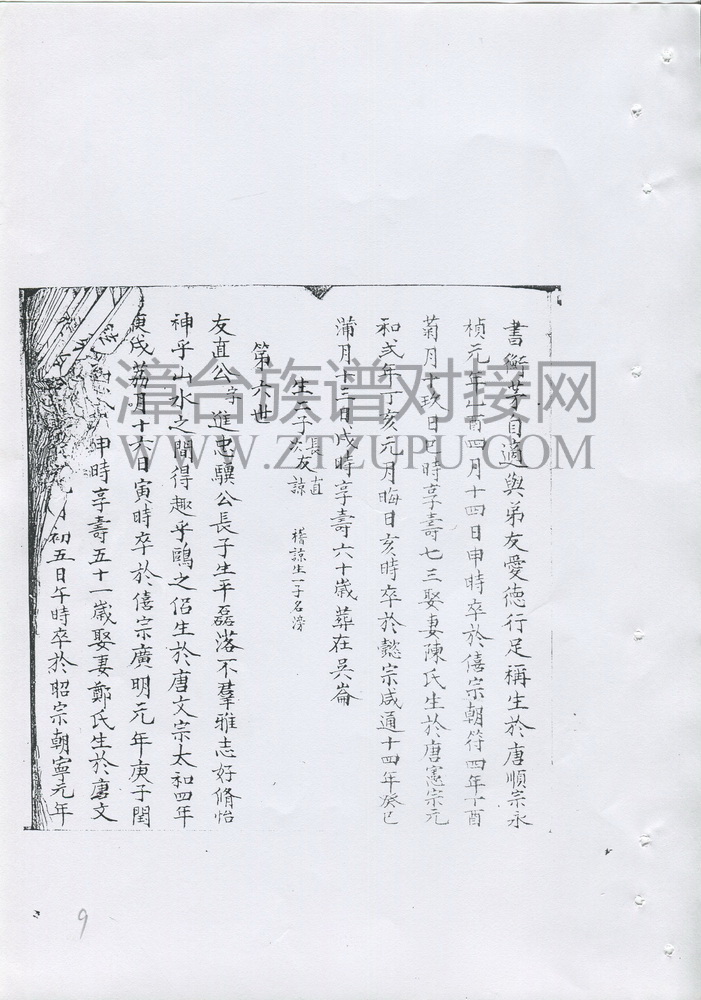 書衡芳自適與弟友愛德行足稱生於唐順宗永
楨元年酉四月十四日申時卒於僖宗朝符四年丁酉
菊月十玖日巳時享壽七三娶妻陳氏生於唐憲宗元
和弍年丁亥元月晦日亥時卒於懿宗咸通十四年癸巳
蒲月十三日戌時享壽六十歲葬在吳崙
生二子長友直
次友諒 稽諒生一子名滂
第六世
友直公字進忠驥公長子生平磊落不羣雅志好脩怡
神乎山水之間得趣乎鷗之侶生於唐文宗太和四年
庚戌荔月十六日寅時卒於僖宗廣明元年庚子閏
申時享壽五十一歲娶妻鄭氏生於唐文
初五日午時卒於昭宗朝寧元年
漳台族谱对接网
WWW.ZTZUPU.COM
9